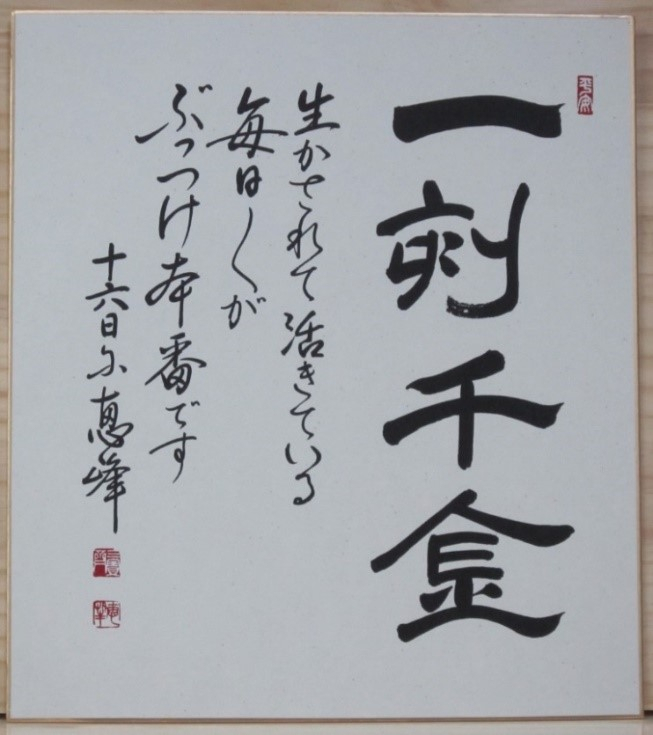 一刻千金
生かされて活きている
毎日〱が
ぶっつけ本番です
十六日に恵峰